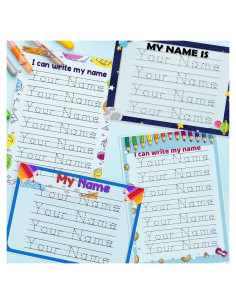 MY NAME IS
Your Name
Your Name
Your Name
Your Name
I can write my name
Your Name
Your Name
Your Name
Your Name
Your Name
I can write my name
Your Name
Your Name
Your Name
Your Name
Your Name
Your Name
My Name
Your Name
Your Name
Your Name
Your Name